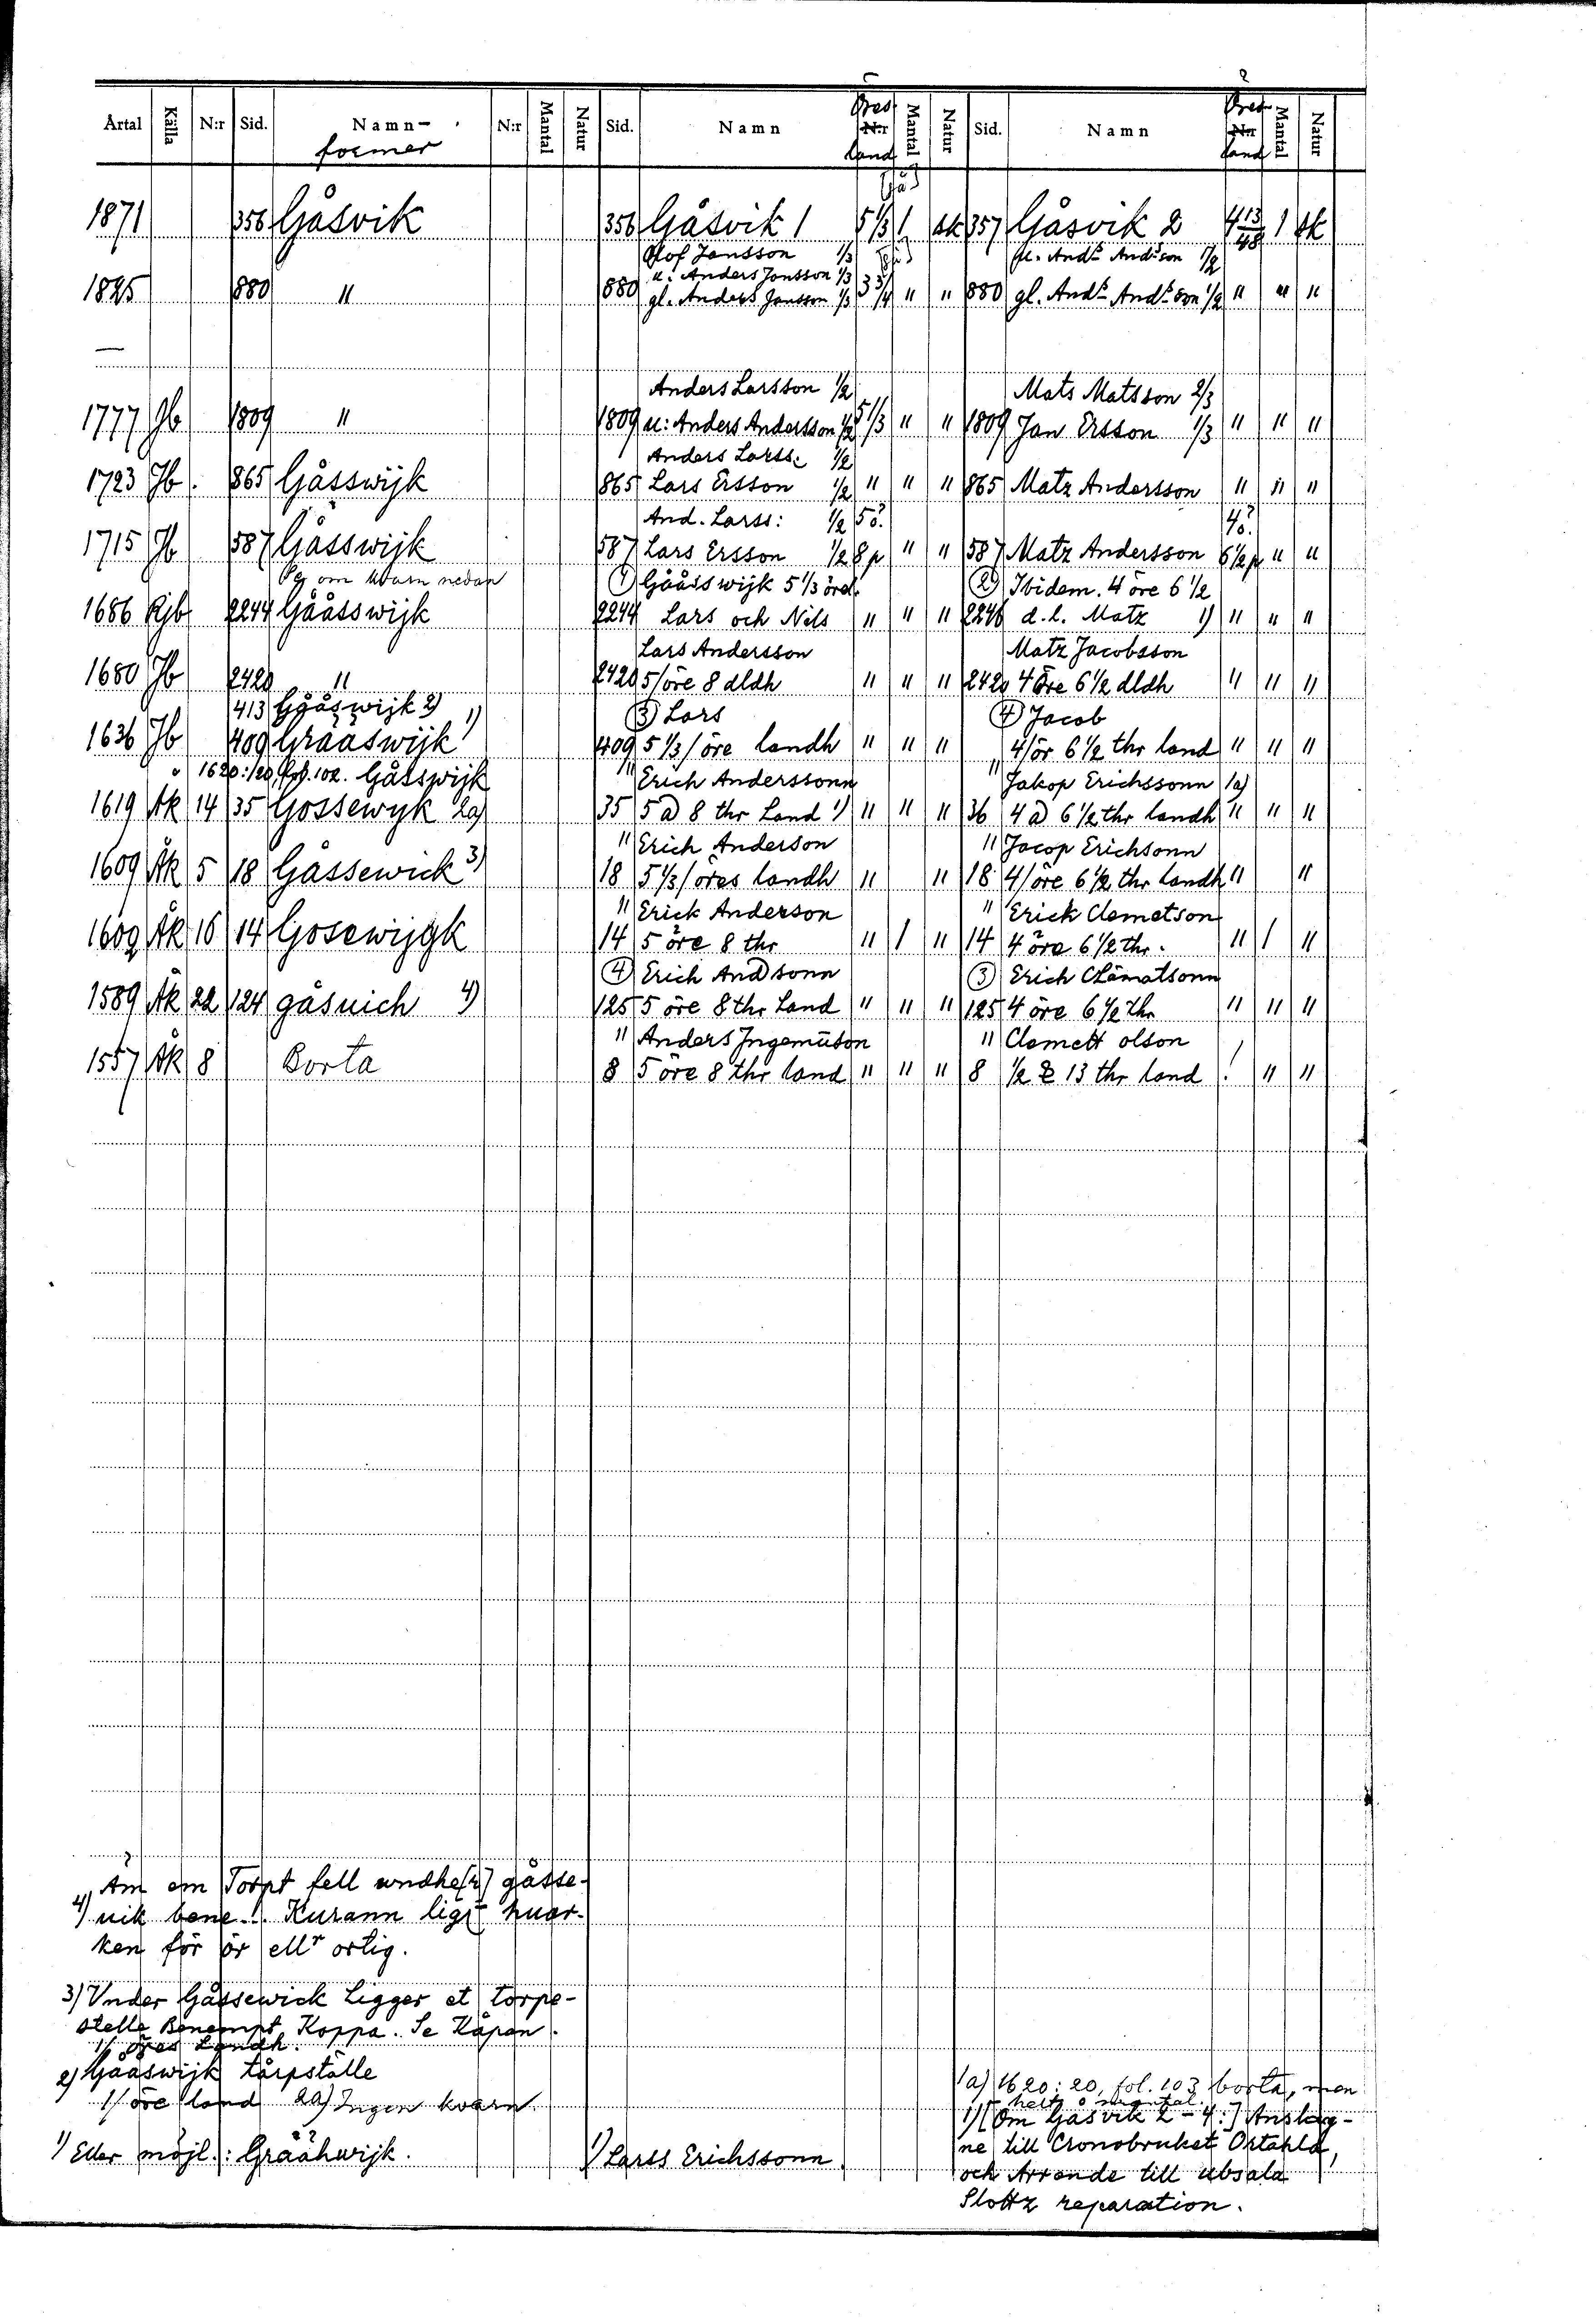 Årtal Källa N:r Sid. Namn- N:r Mantal Natur Sid. Namn Öres N:r Mantal Natur Sid. Namn Öres N:r Mantal Natur
former land land
1871 356 Gåsvik 356 Gåsvik 1 5 1/3 1 sk 357 Gåsvik 2 4 13/48 1 sk
Olof Jansson 1/3 u. And:s And:sson 1/2
u: Anders Jansson 1/3
1825 880 " 880 gl. Anders Jansson 1/3 " " 880 gl. And:s And:sson 1/2 " " "
Anders Larsson 1/2 Mats Matsson 2/3
1777 Jb 1809 " 1809 u: Anders Andersson 1/2 5 1/3 " " 1809 Jan Ersson 1/3 " " "
Anders Larss: 1/2
1723 Jb. 865 Gåsswijk 865 Lars Ersson 1/2 " " " 865 Matz Andersson " " "
And. Larss: 1/2 5ö. 4ö.
1715 Jb 587 Gåsswijk 587 Lars Ersson 1/2 8p " " 587 Matz Andersson 6 1/2 p " "
Sg om kvarn nedan ① Gååsswijk 5 1/3 öre. ② Ibidem. 4 öre 6 1/2
1686 Rjb 2244 Gååsswijk 2244 Lars och Nils " " " 2246 d.l. Matz 1) " " "
Lars Andersson Matz Jacobsson
1680 Jb 2420 " 2420 5/öre 8 dldh " " " 2420 4 öre 6 1/2 dldh " " "
413 Gååswijk 2) ③ Lars ④ Jacob
1636 Jb 409 Grååswijk 1) 409 5 1/3/öre landh " " " " 4/ör 6 1/2 thr land " " "
" 1620:/20, fol. 102. Gåsswijk " Erich Anderssonn " Jakop Erichssonn 1a)
1619 Ak 14 35 Gossewyk 2a) 35 5 8 thr Land 1) " " " 36 4 6 1/2 thr landh " " "
" Erich Anderson " Jacop Erichsonn
1609 Åk 5 18 Gåssewick 3) 18 5 1/3/öres landh " " 18 4/öre 6 1/2 thr landh " "
" Erick Anderson " Erick Clemetson
1609 Åk 16 14 Gosewijgk 14 5 öre 8 thr " 1 " 14 4 öre 6 1/2 thr. " 1 "
④ Erich Andsonn ③ Erich Clämatsonn
1589 Åk 22 124 gåsuich 4) 125 5 öre 8 thr Land " " " 125 4 öre 6 1/2 thr " " "
" Anders Ingemuson " Clemett olson
1557 Åk 8 Borta 8 5 öre 8 thr land " " " 8 1/2 13 thr land ! " "
Äm em Torpt fell undhe[r] gåsse-
4) uik bene... Kurann ligr huar-
ken för ör ellr ortig.
3) Vnder Gåssewick Ligger et torpe-
stelle Benempt Koppa. Se Kåpan.
1/ öres Landh.
2) Gååswijk tårpställe
1/ öre land 2a) Ingen kvarn.
1) Eller möjl.: Gråähwijk.
1) Larss Erichssonn.
1a) 1620:20, fol. 103 borta, men
helt o mantal.
1) [Om Gåsvik 2-4:] Anslag-
ne till Cronobruket Ortahla,
och Arrende till ubsala
Slottz reparation.